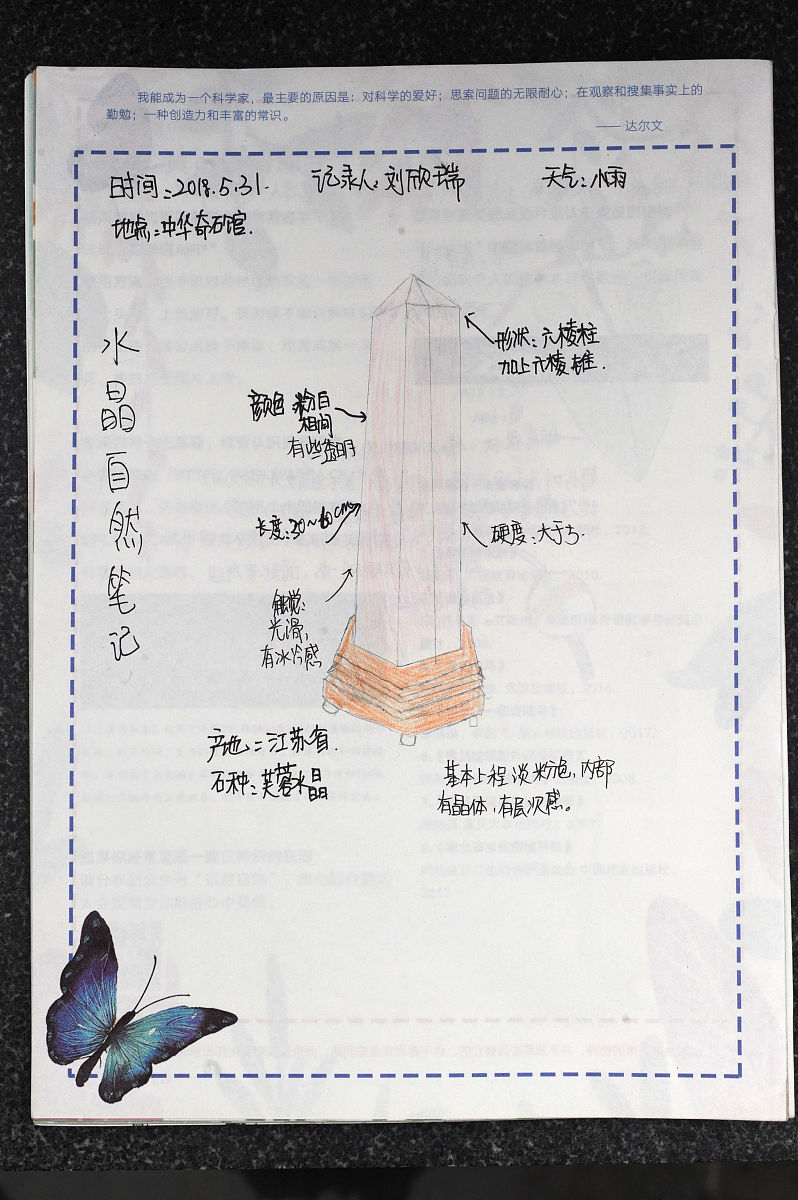 我能成为一个科学家，最主要的原因是：对科学的爱好；思索问题的无限耐心；在观察和搜集事实上的
勤勉；一种创造力和丰富的常识。
—— 达尔文
时间：2018.5.31.
记录人：刘欣瑞
天气：小雨
地点：中华奇石馆.
水晶自然笔记
形状：六棱柱
加上六棱锥.
颜色 粉白
相间
有些透明
长度：20~60cm
硬度：大于5.
触觉：
光滑，
有冰冷感
产地：江苏省.
石种：芙蓉水晶
基本上程淡粉色，内部
有晶体，有层次感。